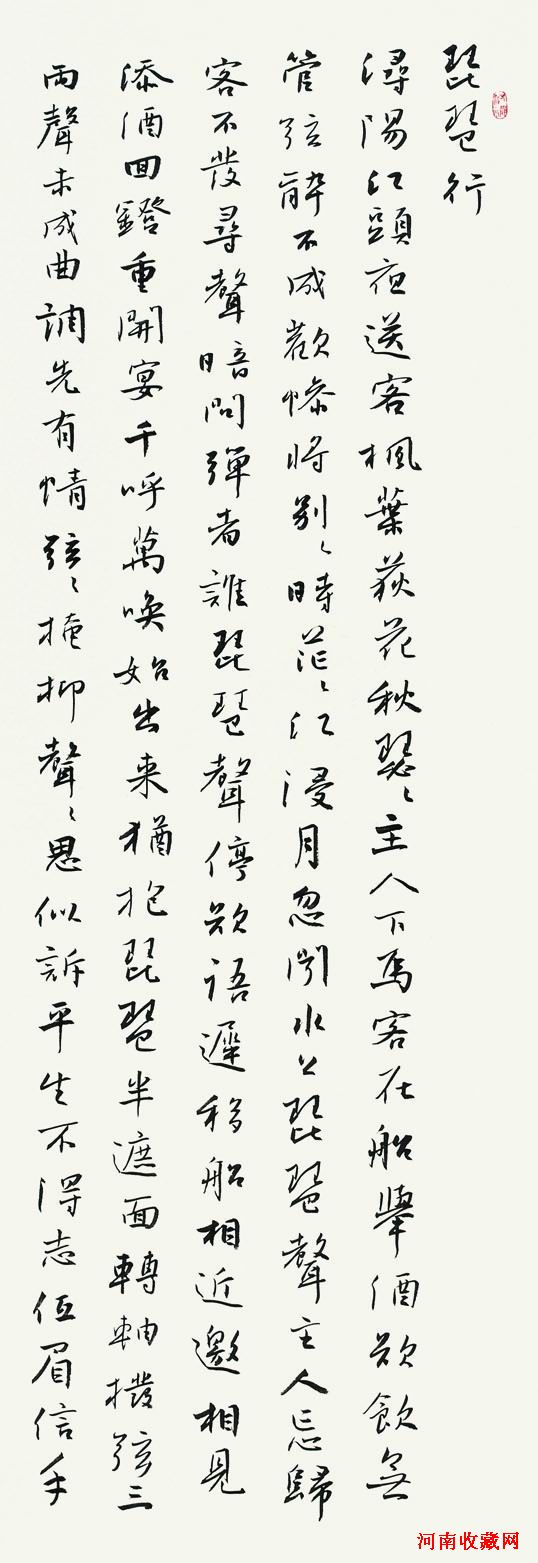 琵琶行
潯陽江頭夜送客楓葉荻花秋瑟〻主人下馬客在船舉酒欲飲無
管弦醉不成歡慘將別〻時茫〻江浸月忽聞水上琵琶聲主人忘歸
客不發尋聲暗問彈者誰琵琶聲停欲語遲移船相近邀相見
添酒回鐙重開宴千呼萬喚始出來猶抱琵琶半遮面轉軸撥弦三
兩聲未成曲調先有情弦〻掩抑聲〻思似訴平生不得志低眉信手
河南收藏网